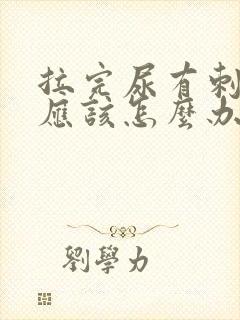 拉完尿有刺
應該怎麼办
劉學力